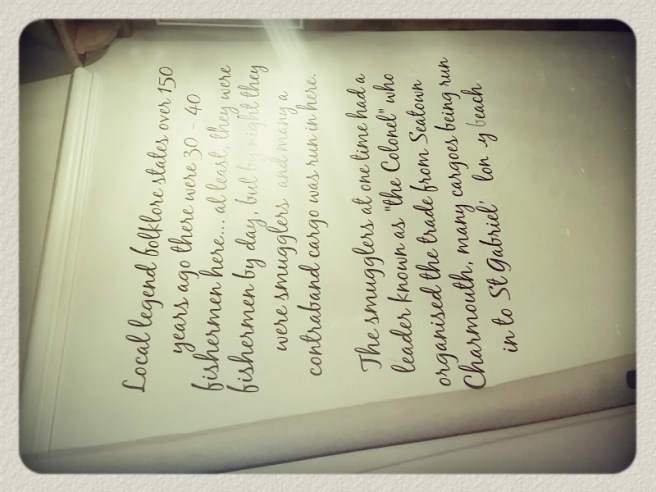 Local legend folklore states over 150
years ago there were 30 - 40
fishermen here... at least, they were
fishermen by day, but by night they
were smugglers and many a
contraband cargo was run in here.
The smugglers at one time had a
leader known as "the Colonel" who
organised the trade from Seatown
Charmouth, many cargoes being run
in to St Gabriel' beach